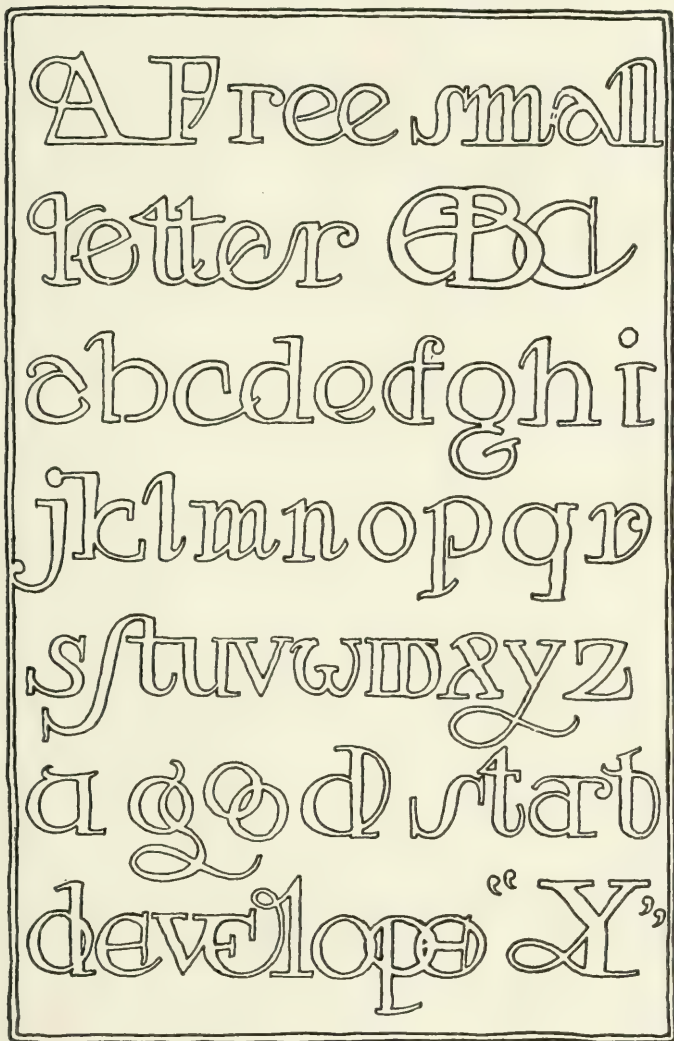 A Free small
letter ABC
abcdefghi
jklmnopqr
sſtuvwwxyz
a good start
develope “Y”